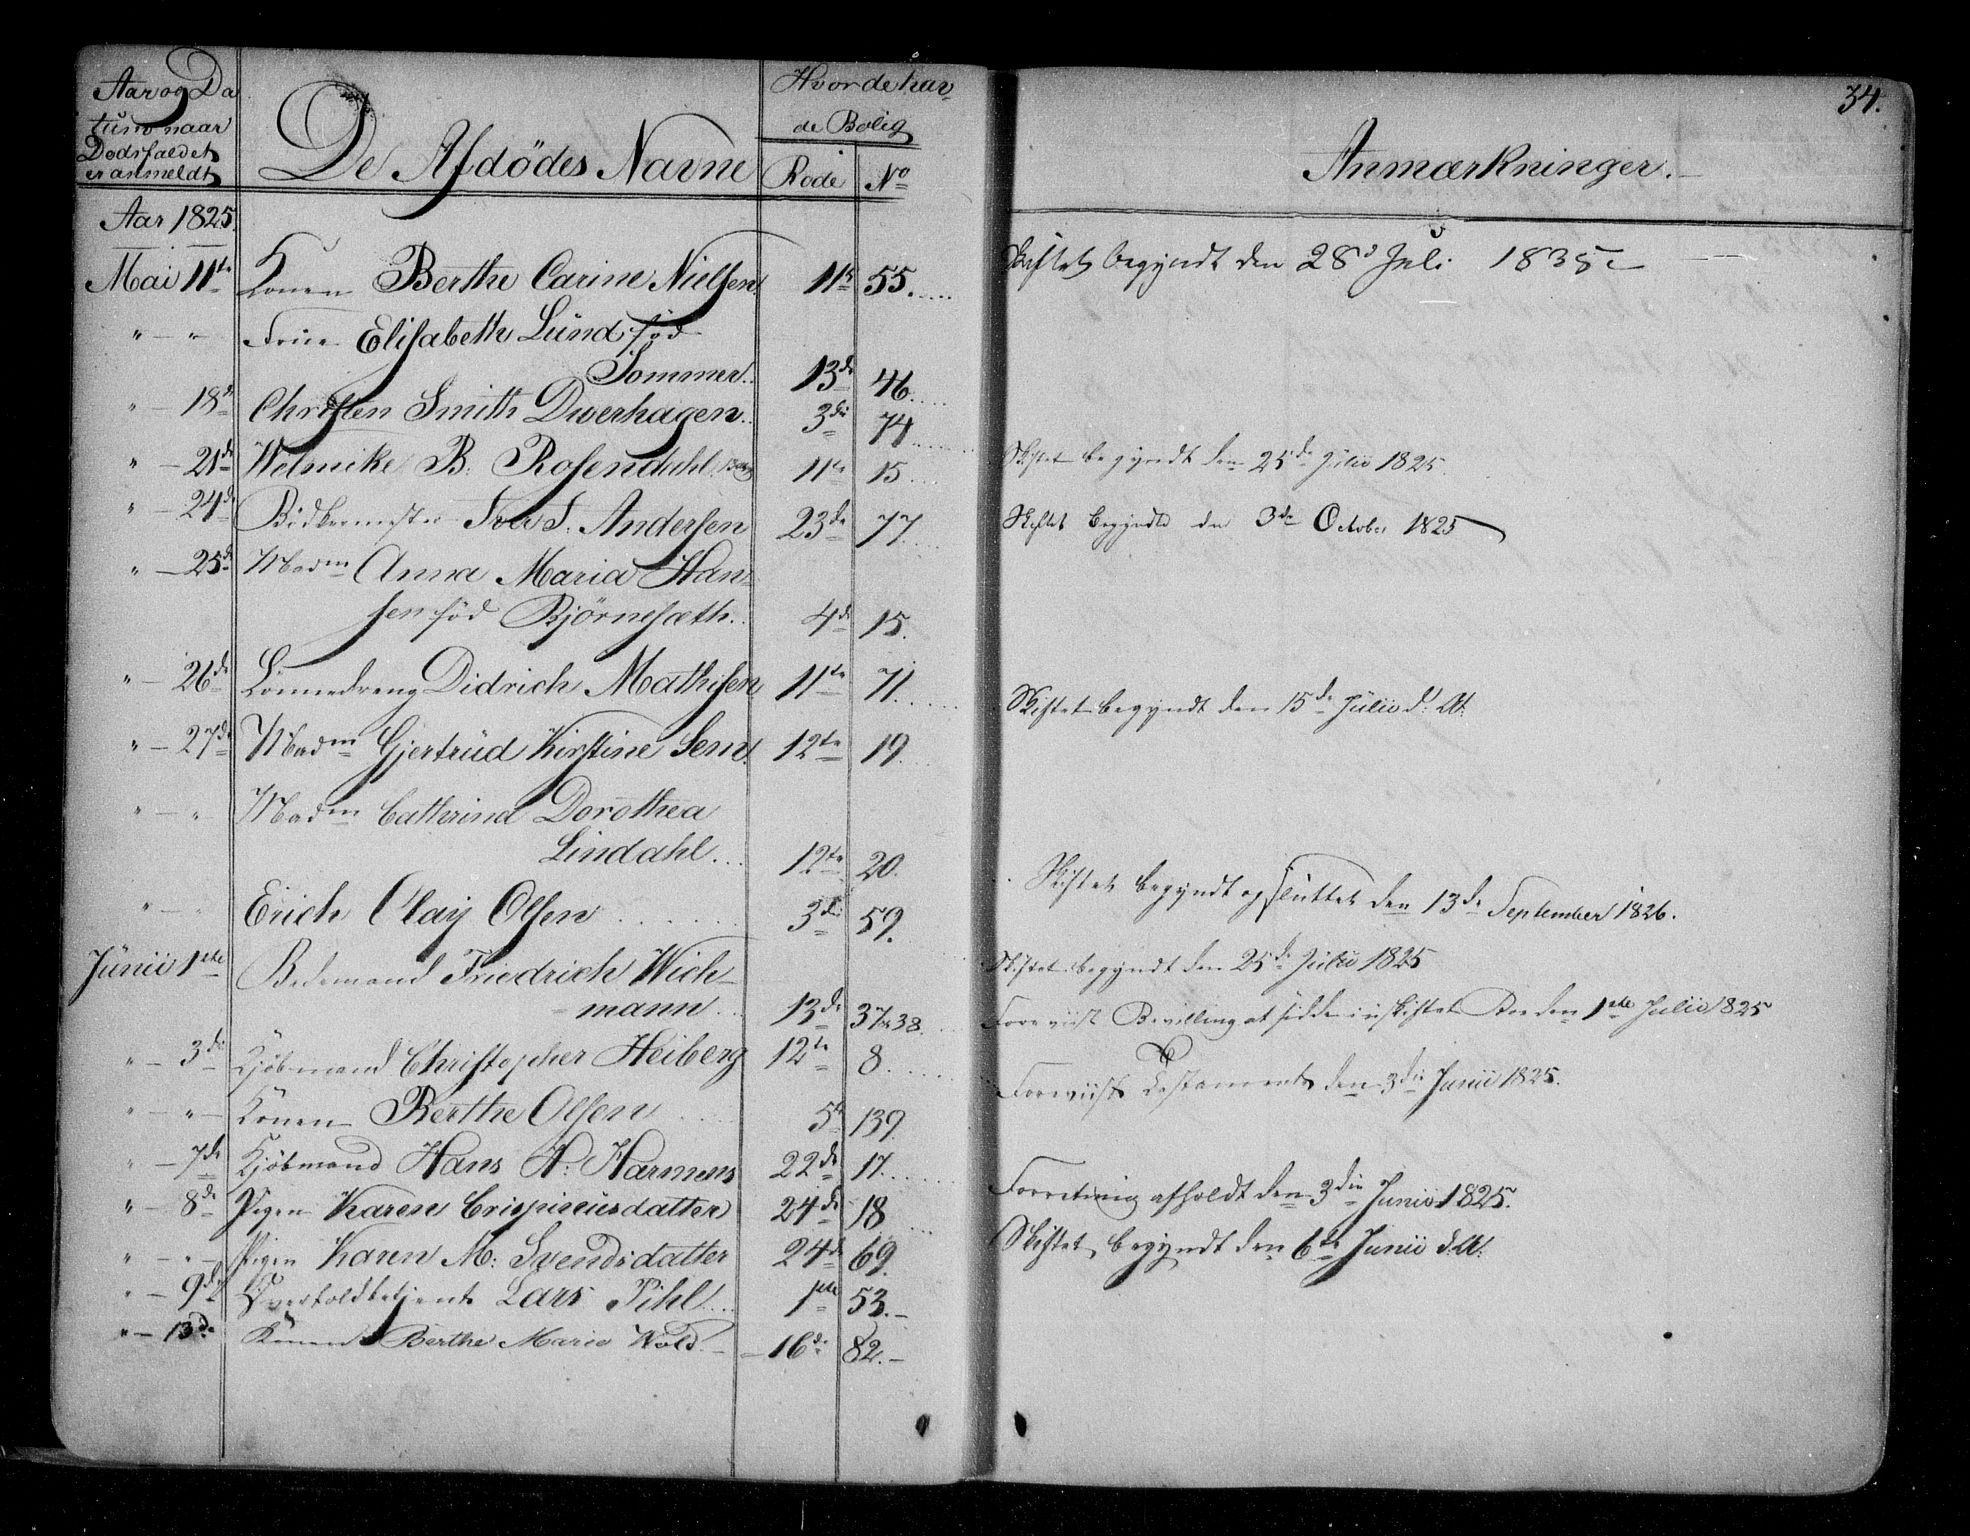 Aar og Da
tum naar
Dödsfaldet
er anmeldt
De Afdödes Navne
Hvor de hav
de Bolig
Rode No
Anmærkninger.
34.
Aar 1825.
Mai 11te Konen Berthe Carine Nielsen 11te 55.
Skiftet begyndt den 28d Juli 1835
" — " Frue Elisabeth Lund föd
Sommer. 13de 46.
" — 18de Christen Smith Dwerhagen. 3die 74.
" — 21de Welmike B: Rosendahl 11te 15
Skiftet begyndt den 25de Julii 1825.
" — 24de Bödkermester Iver S. Andersen 23de 77.
Skiftet begyndt den 3die October 1825
" — 25de Madm Anna Maria Han-
sen föd Björnesæth. 4de 15.
" — 26de Lönnedreng Didrich Mathisen 11te 71.
Skiftet begyndt den 15de Julii d. A.
" — 27de Madm Gjertrüd Kirstine Sem. 12te 19.
" — " Madm Cathrina Dorothea
Lindahl. 12te 20.
Skiftet begyndt og sluttet den 13de September 1826.
" — " Erich Olaij Olsen 3die 59.
Junii 1ste Bedemand Friedrich Wich-
mann 13de 37/38.
Skiftet begyndt den 25de Julii 1825
Foreviist Bevilling at sidde i uskiftet Boe den 1ste Julii 1825
" — 3die Kjöbmand Christopher Heiberg 12te 8.
Foreviist Testamente den 3die Junii 1825.
" — " — Konen Berthe Olsen 5te 139.
" — 7de Kjöbmand Hans H: Harmens 22de 17.
" — 8de Pigen Karen Crispiniusdatter 24de 18
Forretning afholdt den 3die Junii 1825.
" — " — Pigen Karen M: Svendsdatter 24de 69.
Skiftet begyndt den 6te Junii d. A.
" — 9de Overtoldbetjent Lars Pihl 1ste 53.
" — 13de Konen Berthe Marie Wold. 16de 82.